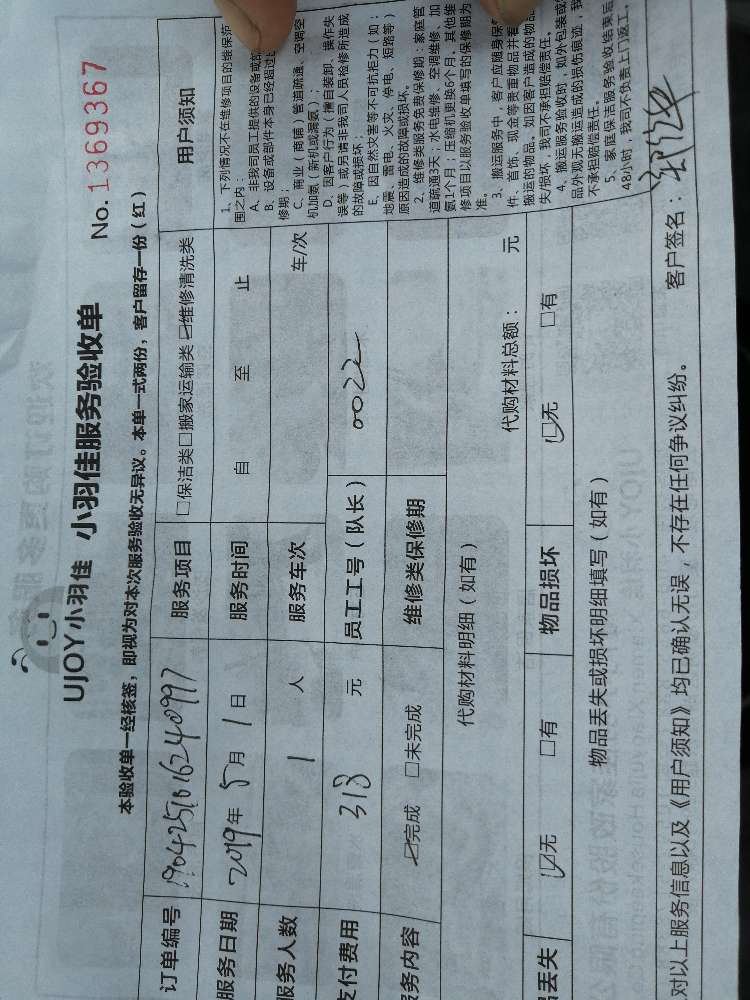 UJOY小羽佳 小羽佳服务验收单
No. 1369367
本验收单一经核签，即视为对本次服务验收无异议。本单一式两份，客户留存一份（红）
订单编号 1904251016240997 服务项目 □保洁类□搬家运输类☑维修清洗类 用户须知
服务日期 2019年5月1日 服务时间 自 至 止
服务人数 1 人 服务车次 车/次
支付费用 318 元 员工工号（队长） 0022
服务内容 ☑完成 □未完成 维修类保修期
代购材料明细（如有） 代购材料总额： 元
品丢失 ☑无 □有 物品损坏 ☑无 □有
物品丢失或损坏明细填写（如有）
1、下列情况不在维修项目的维保范
围之内：
A、非我司员工提供的设备或部
B、设备或部件本身已经超过
修期；
C、商业（商铺）管道疏通、空调空
机加氨（新机或漏氨）；
D、因客户行为（擅自装卸、操作失
误等）或另请非我司人员检修所造成
的故障或损坏；
E、因自然灾害等不可抗拒力（如：
地震、雷电、火灾、停电、短路等）
原因造成的故障或损坏。
2、维修类服务免费保修期：家庭管
道疏通3天；水电维修、空调维修、加
氨1个月；压缩机更换6个月，其他维
修项目以服务验收单填写的保修期为
准。
3、搬运服务中，客户应随身保
件、首饰、现金等贵重物品并看
搬运的物品，如因客户造成的物品
失/损坏，我司不承担赔偿责任。
4、搬运服务验收时，如外包装或
品外观无搬运造成的损伤痕迹，我
不承担赔偿责任。
5、家庭保洁服务验收结束后
48小时，我司不负责上门返工。
对以上服务信息以及《用户须知》均已确认无误，不存在任何争议纠纷。 客户签名：